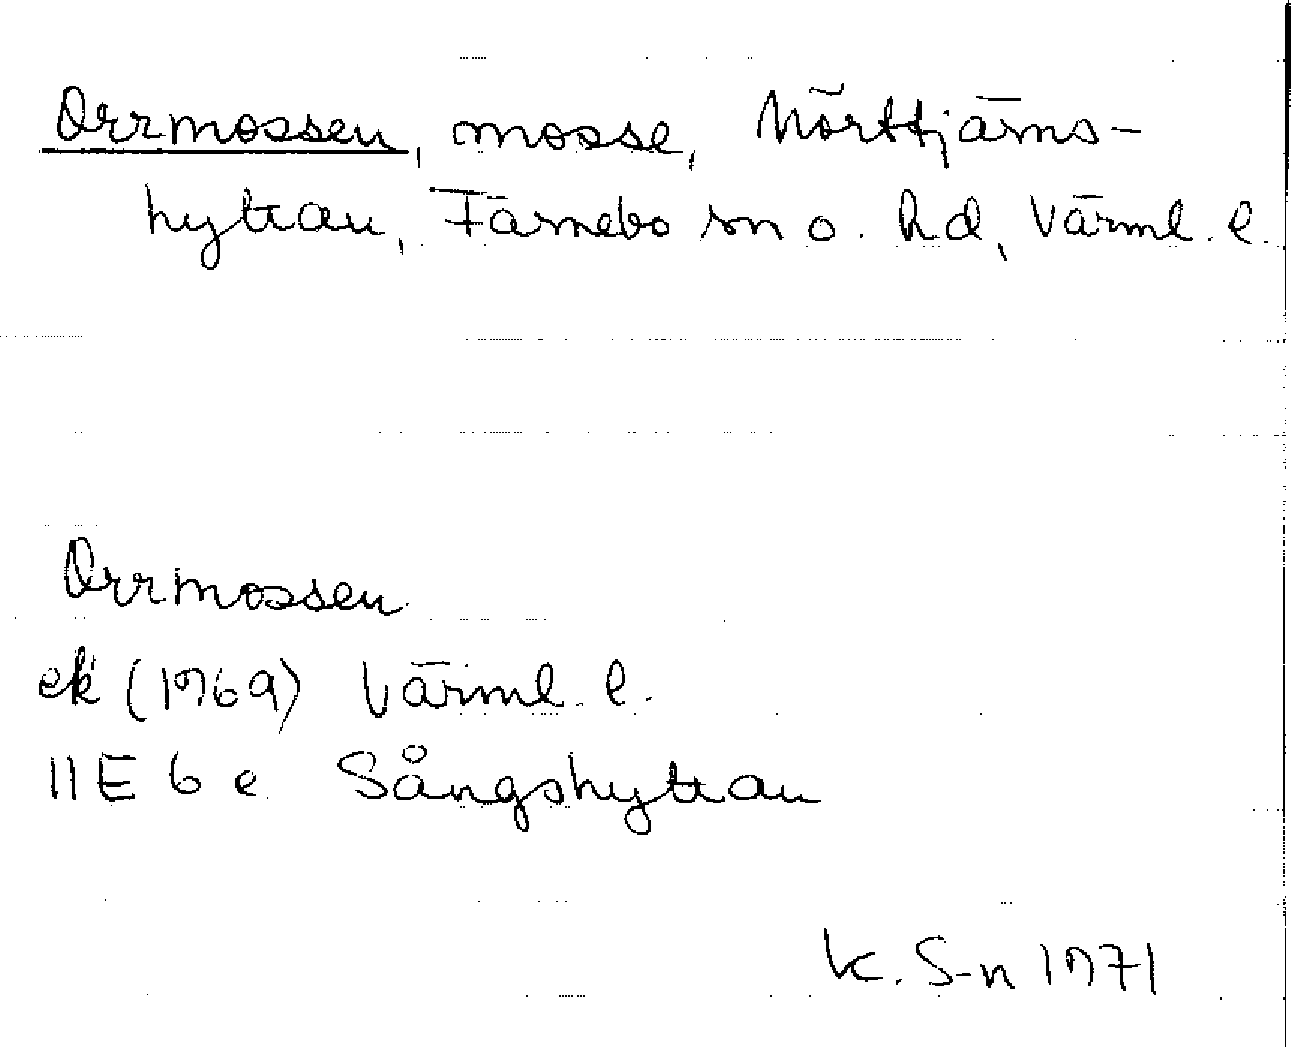 Orrmossen, mosse, Mörttjärns-
hyttan, Färnebo sn o. hd, Värml. l.
Orrmossen
ek (1969) Värml. l.
11E 6 e Sångshyttan
K. S-n 1971